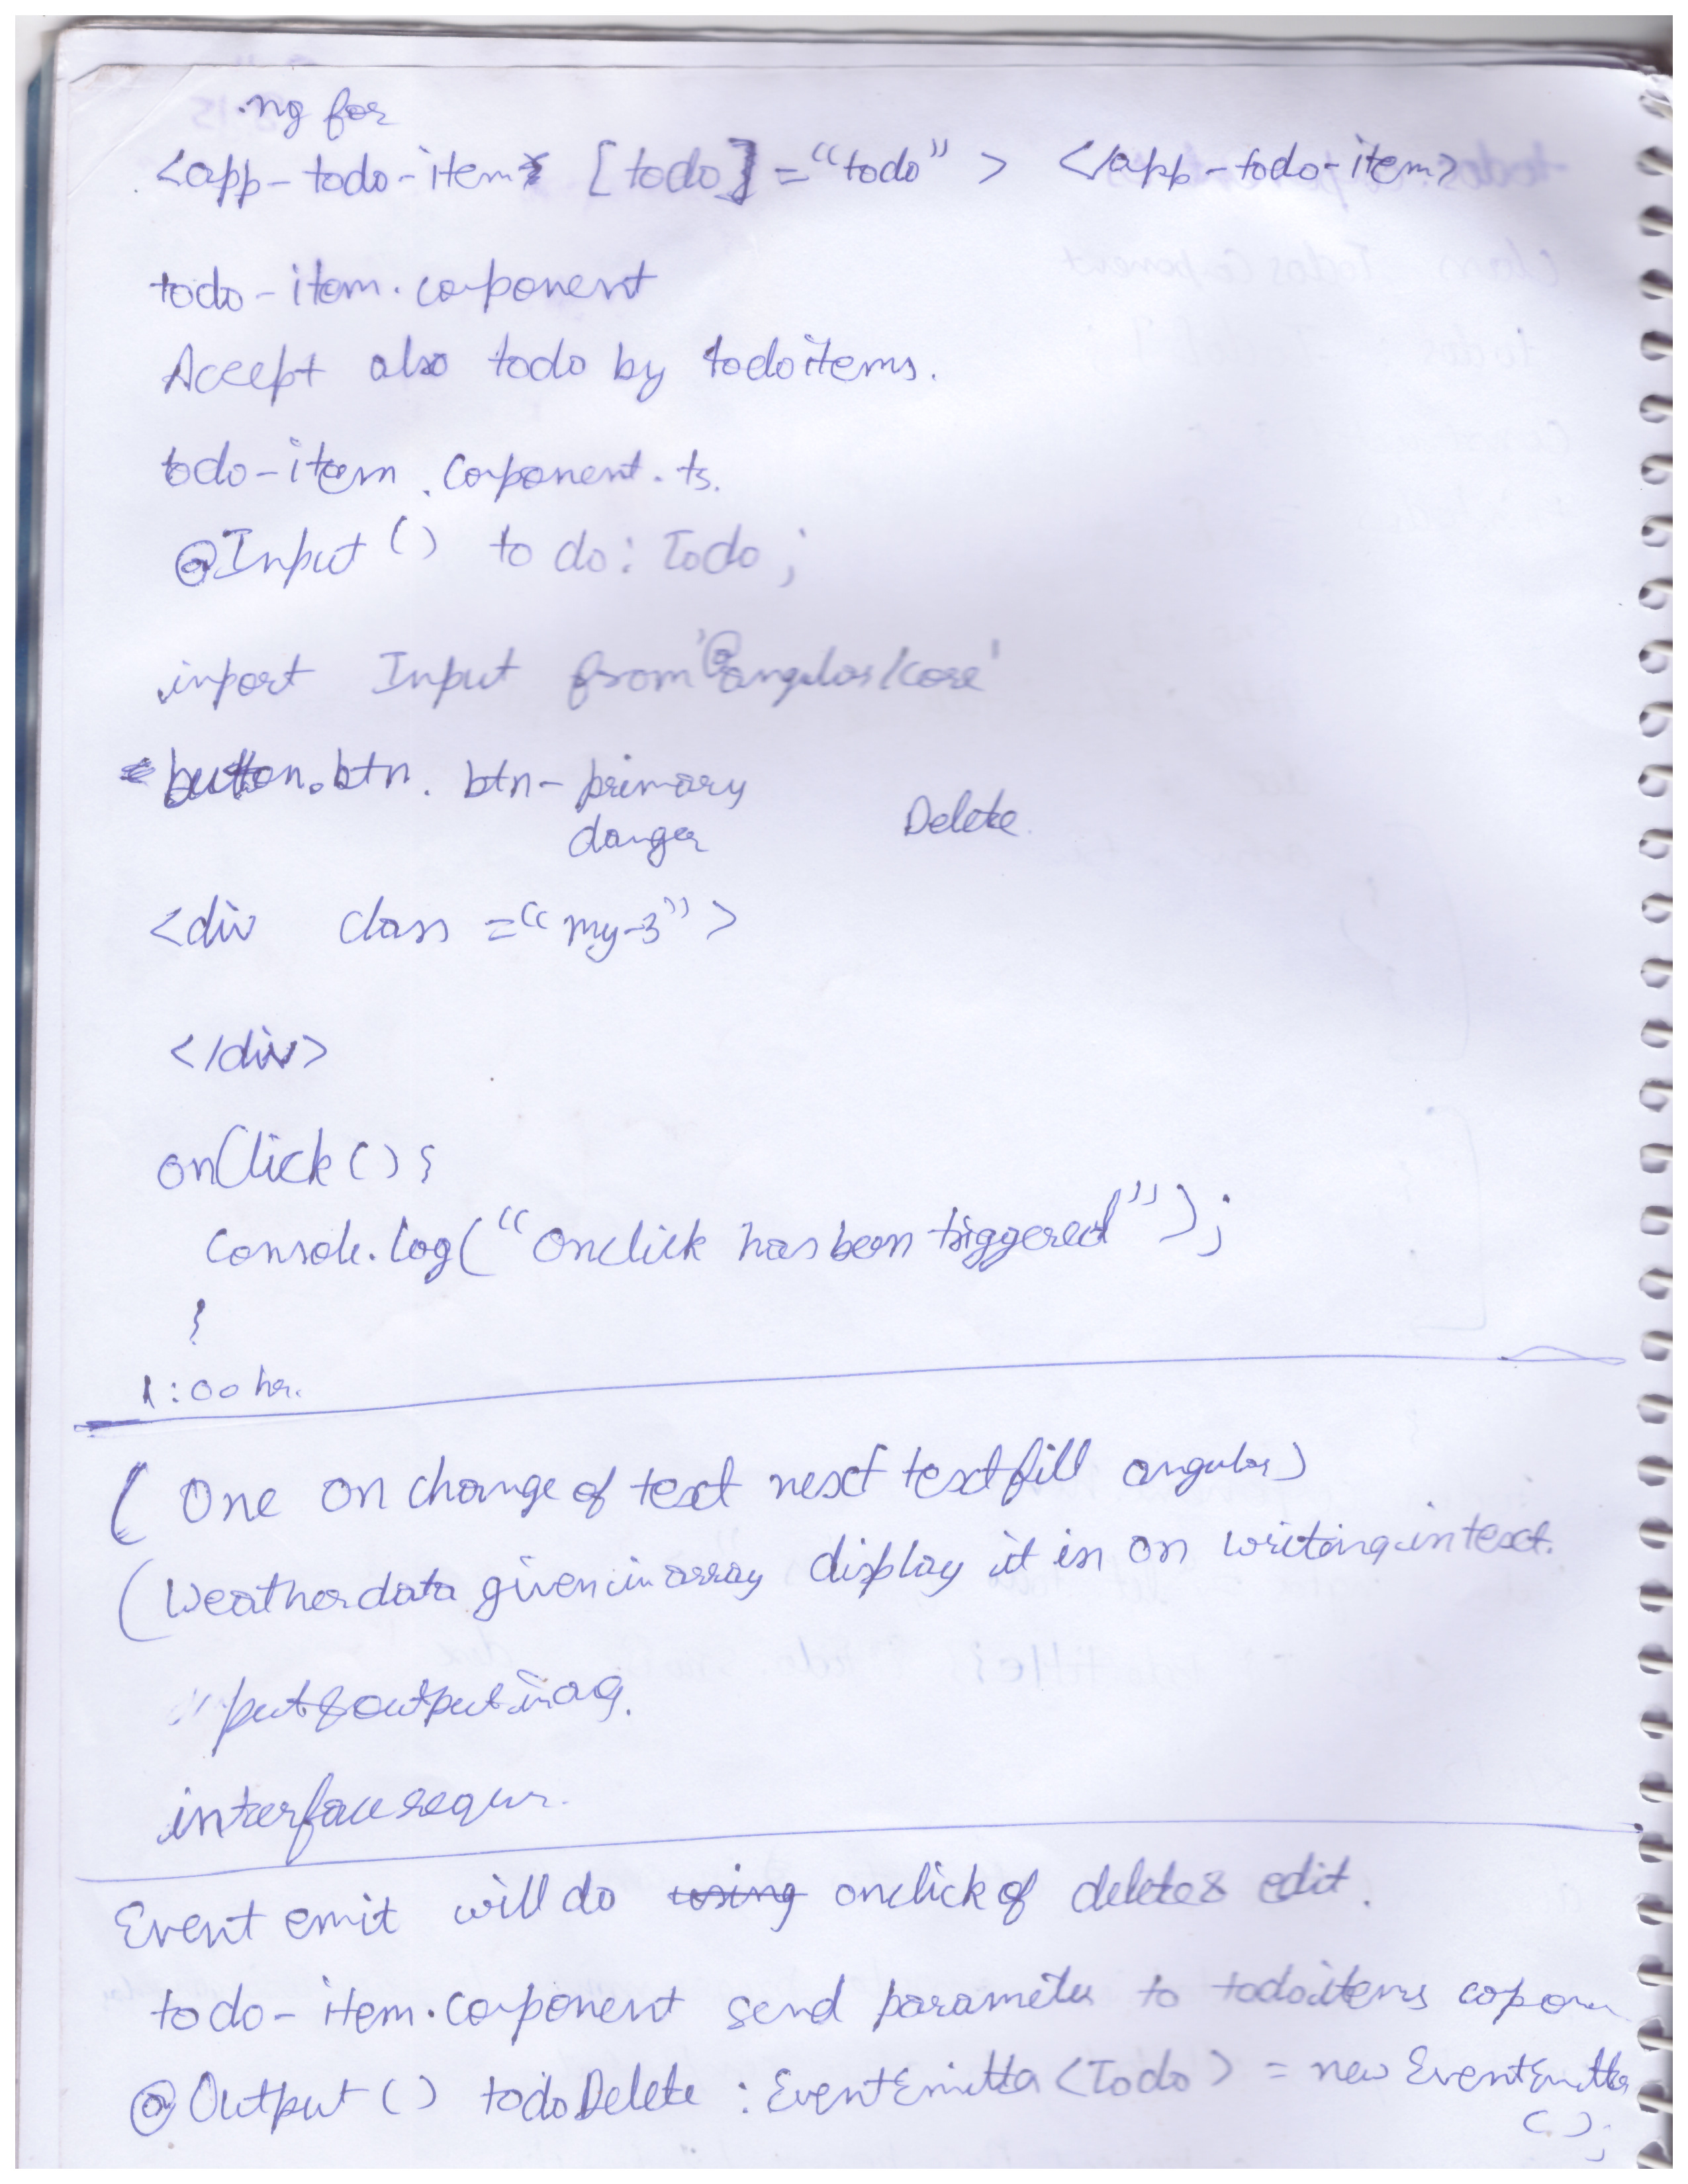 ng for
<app-todo-item [todo]="todo" > </app-todo-item>
todo-item.coponent
Accept also todo by todoitems.
todo-item.coponent.ts.
@Input() to do: Todo;
inport Input from '@angular/core'
button.btn. btn-primary
danger Delete.
<div class="my-3">
</div>
onClick(){
Console.log("Onclick has been triggered");
}
1:00 hr.
(One on change of text next text fill angular)
(Weather data given in array display it in on writing in text.
put & output in ag.
interface
Event emit will do using onclick of delete & edit.
todo-item.coponent send parameter to todoitems copon
@Output() todoDelete : EventEmitter<Todo> = new EventEmitter
();